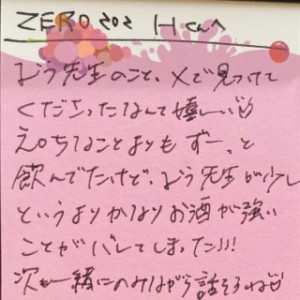 ZERO 202 Hさんへ
よう先生のこと、Xで見つけて
くださったなんて嬉しい♡
えっちなことよりも ずーっと
飲んでたけど、よう先生が少し
というよりかなりお酒が強い
ことがバレてしまった!!!
次も一緒にのみながら話そうね♡